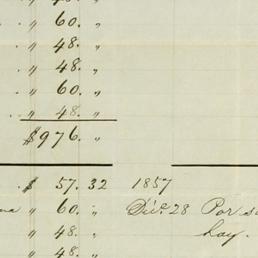 " 48. "
. " 60. "
. " 48. "
" 48. "
" 60. "
. . " 48. "
$976. "
. $ 57. 32 1857
" 60. " Dec. 28 Por
" 48. " hay.
" 48. "